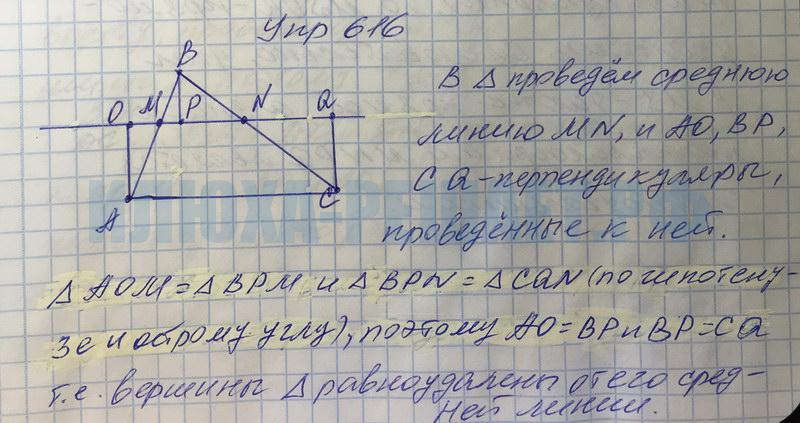 Упр 616
B
O M P N Q
A C
В Δ проведём среднюю
линию MN, и AO, BP,
CQ - перпендикуляры,
проведённые к ней.
КЛЮХА-РЕШЕБНИК
Δ AOM = Δ BPM и Δ BPN = Δ CQN (по гипотену-
зе и острому углу), поэтому AO = BP и BP = CQ
т.е. вершины Δ равноудалены от его сред-
ней линии.